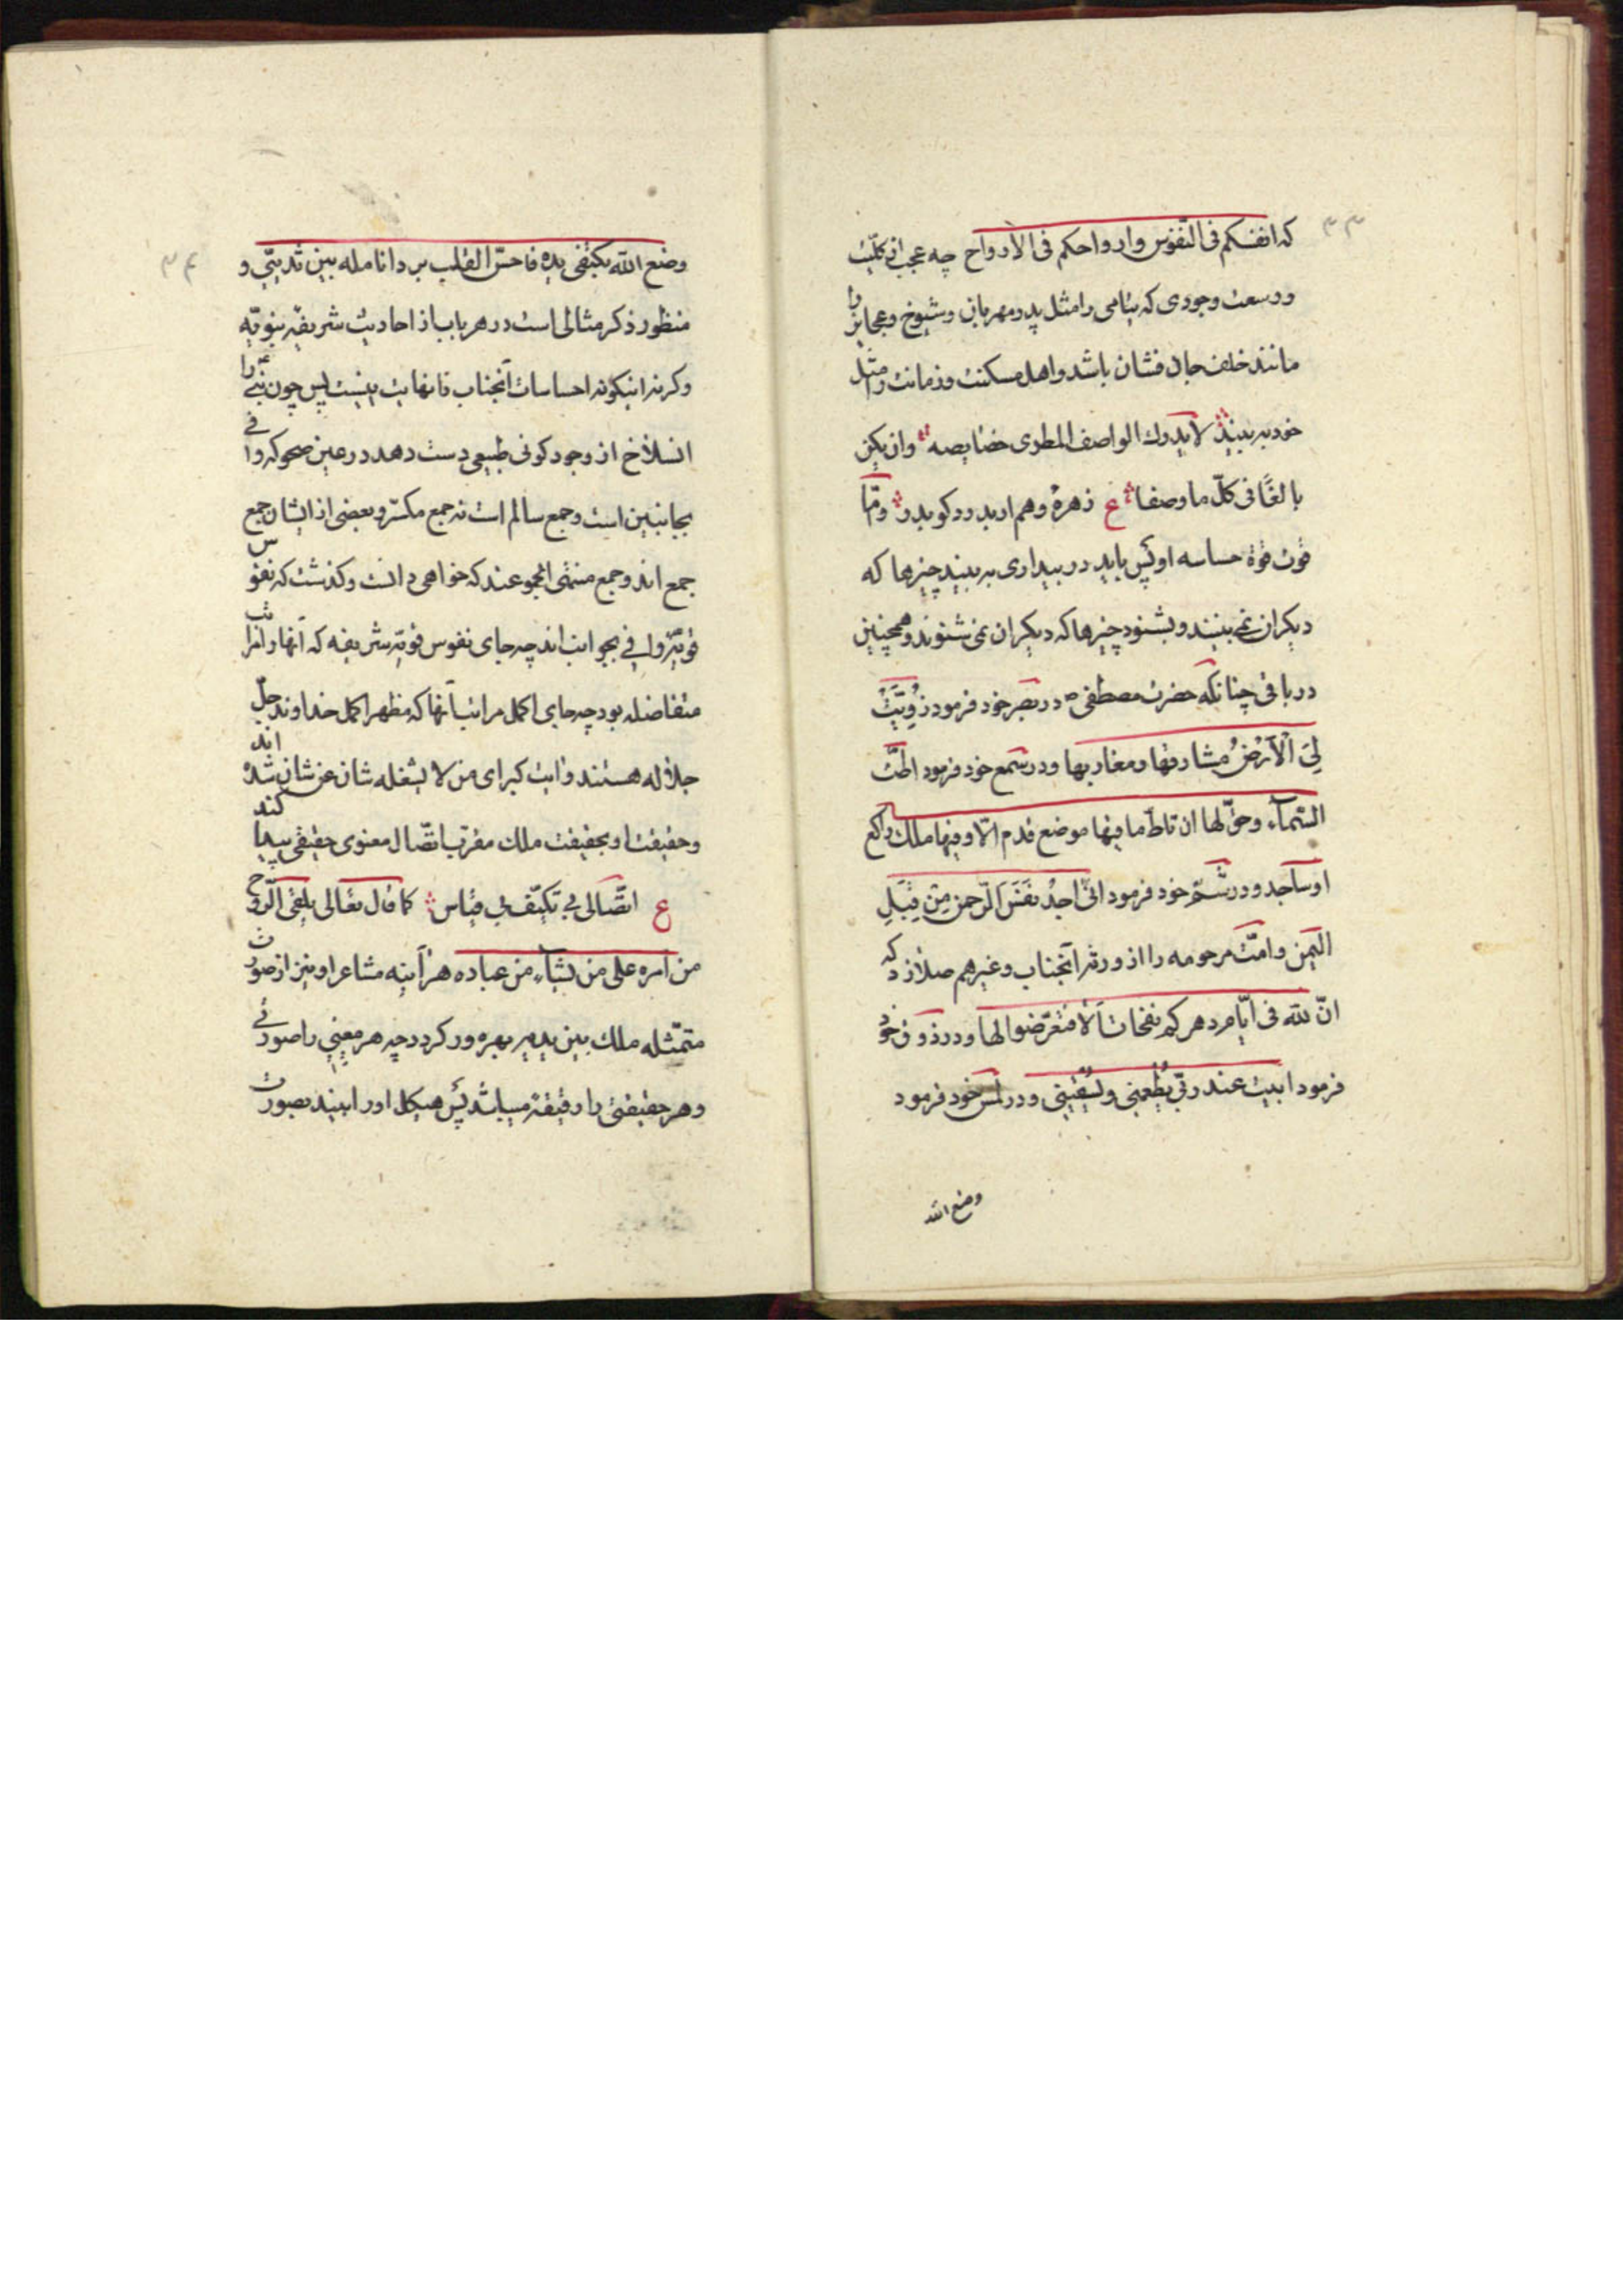 ۳۳
که انفسکم فی النّفوس وارواحکم فی الأرواح چه عجب از کلّیت
ووسعت وجودی که یتامی را مثل پدر مهربان وشیوخ وعجایز را
مانند خلف جان فشان باشد واهل مسکنت وزمانت را مثل
خود به بیند لا یدرك الواصف المطری خصایصه وان یکن
بالغًا فی کلّ ما وصفا ع زهرهٔ وهم ار بدرد کو بدر وامّا
قوت قوة حساسه او پس باید در بیداری به بیند چیزها که
دیکران نمی بینند وبشنود چیزها که دیکران نمی شنوند وهمچنین
در باقی چنانکه حضرت مصطفی ص در بصر خود فرمود زُوِیَتْ
لِیَ الْاَرْضُ مشارقها ومغاربها ودر سمع خود فرمود اطّت
السّمآء وحقّ لها ان تاطّ ما فیها موضع قدم الّا وفیها ملك راکع
او ساجد ودر شمّ خود فرمود انّی اجدُ نفَسَ الرّحمن مِن قِبَلِ
الیمن وامّت مرحومه را از ورثه آنجناب وغیرهم صلا زد که
انّ للّه فی ایّام دهرکم نفحات اَلا فتعرّضوا لها ودر ذوق خود
فرمود ابیت عند ربّی یُطعمنی ویُسقینی ودر لمس خود فرمود
وضع اللّه
۳۴
وضع اللّه بکتفی یده فاحسّ القلب برد انامله بین ثدییّ و
منظور ذکر مثالی است در هر باب از احادیث شریفهٔ نبویّه
وکرنه اینکونه احساسات آنجناب را نهایت نیست پس چون نبّی را
انسلاخ از وجود کونی طبیعی دست دهد در عین صحو که وافی
بجانبین است وجمع سالم است نه جمع مکسّر وبعضی از ایشان جمع
جمع اند وجمع منتهی الجموعند که خواهی دانست وکذشت که نفوس
قویّه وافی بجوانب اند چه جای نفوس قویّه شریفه که آنها را مراتب
متفاضله بود چه جای اکمل مراتب آنها که مظهر اکمل خداوند جلّ
جلاله هستند وآیت کبرای من لا یشغله شان عن شان شده اند
وحقیقت او بحقیقت ملك مقرّب اتّصال معنوی حقیقی پیدا کند
ع اتّصالی بی تکیّف بی قیاس کما قال تعالی یلقی الرّوح
من امره علی من یشآء من عباده هر آینه مشاعر او نیز از صورت
متمثّله ملك بین یدیه بهره ور کردد چه هر معنیی را صورتی
وهر حقیقتی را رقیقة میباشد پس هیکل او را بیند بصورت